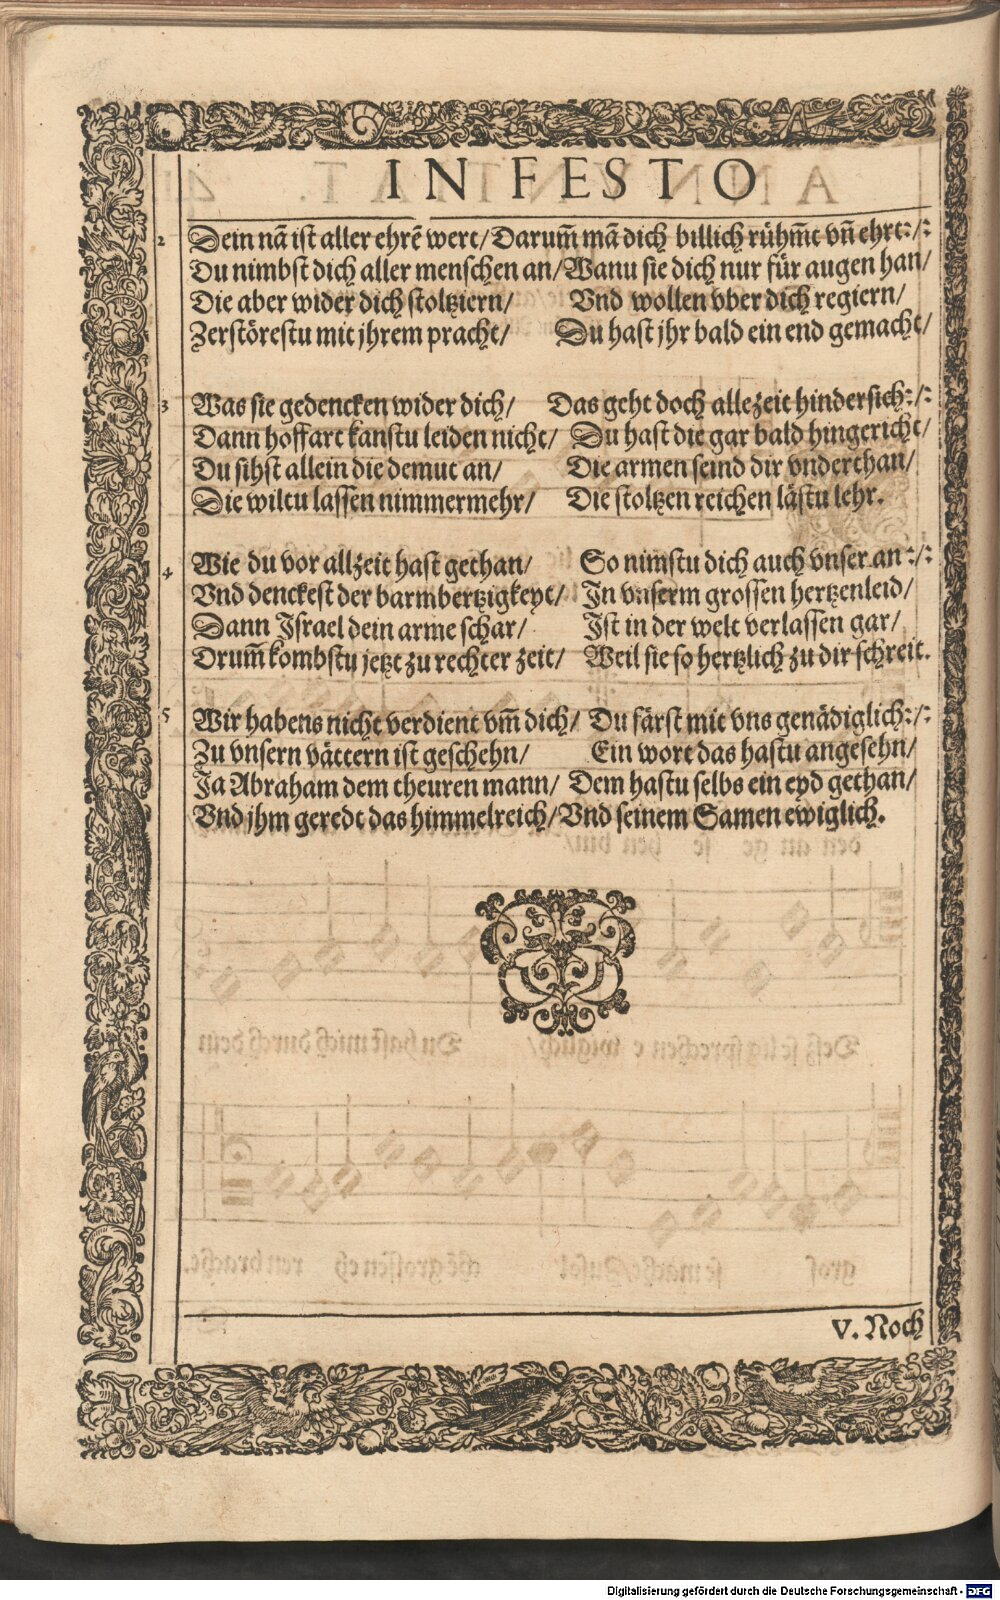 IN FESTO
2 Dein nã ist aller ehrẽ wert/ Darum̃ mã dich billich rühm̃t vñ ehrt:/:
Du nimbst dich aller menschen an/ Wanu sie dich nur für augen han/
Die aber wider dich stoltziern/ Vnd wollen vber dich regiern/
Zerstörestu mit jhrem pracht/ Du hast jhr bald ein end gemacht/
3 Was sie gedencken wider dich/ Das geht doch allezeit hindersich:/:
Dann hoffart kanstu leiden nicht/ Du hast die gar bald hingericht/
Du sihst allein die demut an/ Die armen seind dir vnderthan/
Die wiltu lassen nimmermehr/ Die stoltzen reichen lästu lehr.
4 Wie du vor allzeit hast gethan/ So nimstu dich auch vnser an:/:
Vnd denckest der barmhertzigkeyt/ In vnserm grossen hertzenleid/
Dann Israel dein arme schar/ Ist in der welt verlassen gar/
Drum̃ kombstu jetzt zu rechter zeit/ Weil sie so hertzlich zu dir schreit.
5 Wir habens nicht verdient vm̃ dich/ Du färst mit vns genädiglich:/:
Zu vnsern vättern ist geschehn/ Ein wort das hastu angesehn/
Ja Abraham dem theuren mann/ Dem hastu selbs ein eyd gethan/
Vnd jhm geredt das himmelreich/ Vnd seinem Samen ewiglich.
V. Noch
Digitalisierung gefördert durch die Deutsche Forschungsgemeinschaft - DFG